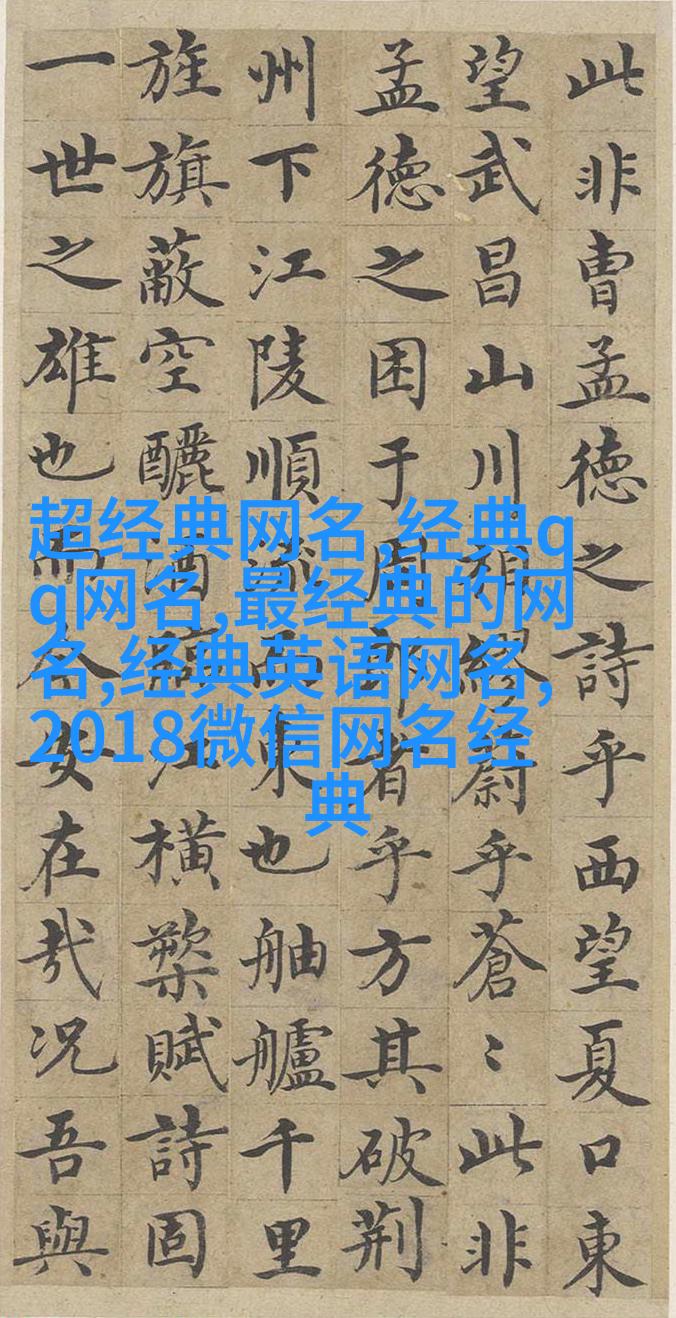 此非曹孟德之詩乎西望夏口東
望武昌山川相繆蔚乎蒼〻此非
孟德之困于周郎者乎方其破荊
州下江陵順流而東也舳艫千里
旌旗蔽空釃酒臨江橫槊賦詩固
一世之雄也而今安在哉況吾與
超经典网名,经典q
q网名,最经典的网
名,经典英语网名,
2018微信网名经
典